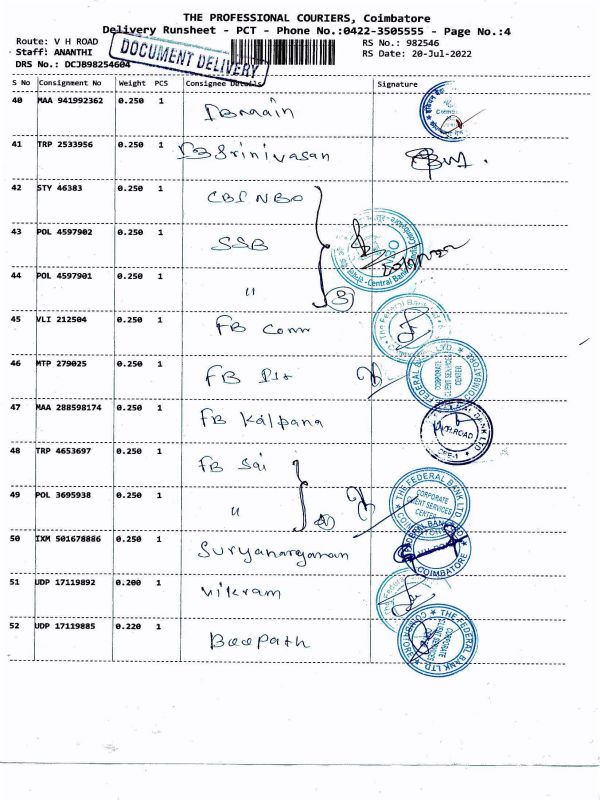 THE PROFESSIONAL COURIERS, Coimbatore
Delivery Runsheet - PCT - Phone No.:0422-3505555 - Page No.:4
Route: V H ROAD RS No.: 982546
Staff: ANANTHI RS Date: 20-Jul-2022
DRS No.: DCJB98254604
DOCUMENT DELIVERY
S No Consignment No Weight PCS Consignee Details Signature
40 MAA 941992362 0.250 1 IB main
41 TRP 2533956 0.250 1 IB Srinivasan
42 STY 46383 0.250 1 CBI NBO
43 POL 4597902 0.250 1 SSB
Central Bank
44 POL 4597901 0.250 1 "
3
45 VLI 212504 0.250 1 FB Comm
The Federal Bank
46 MTP 279025 0.250 1
FB
FEDERAL BANK LTD. COIMBATORE
CORPORATE CLIENT SERVICES CENTER
47 MAA 288598174 0.250 1 FB Kalpana
V.H.ROAD
BANK LTD
CBE-1
48 TRP 4653697 0.250 1 FB Sai
THE FEDERAL BANK LTD
CORPORATE
CLIENT SERVICES
CENTER
49 POL 3695938 0.250 1 "
50 IXM 501678886 0.250 1 Suryanarayanan
FEDERAL BANK
COIMBATORE
51 UDP 17119892 0.200 1 Vikram
The Federal
52 UDP 17119885 0.220 1 Boopath
THE FEDERAL BANK LTD. COIMBATORE
CORPORATE
CLIENT SERVICES